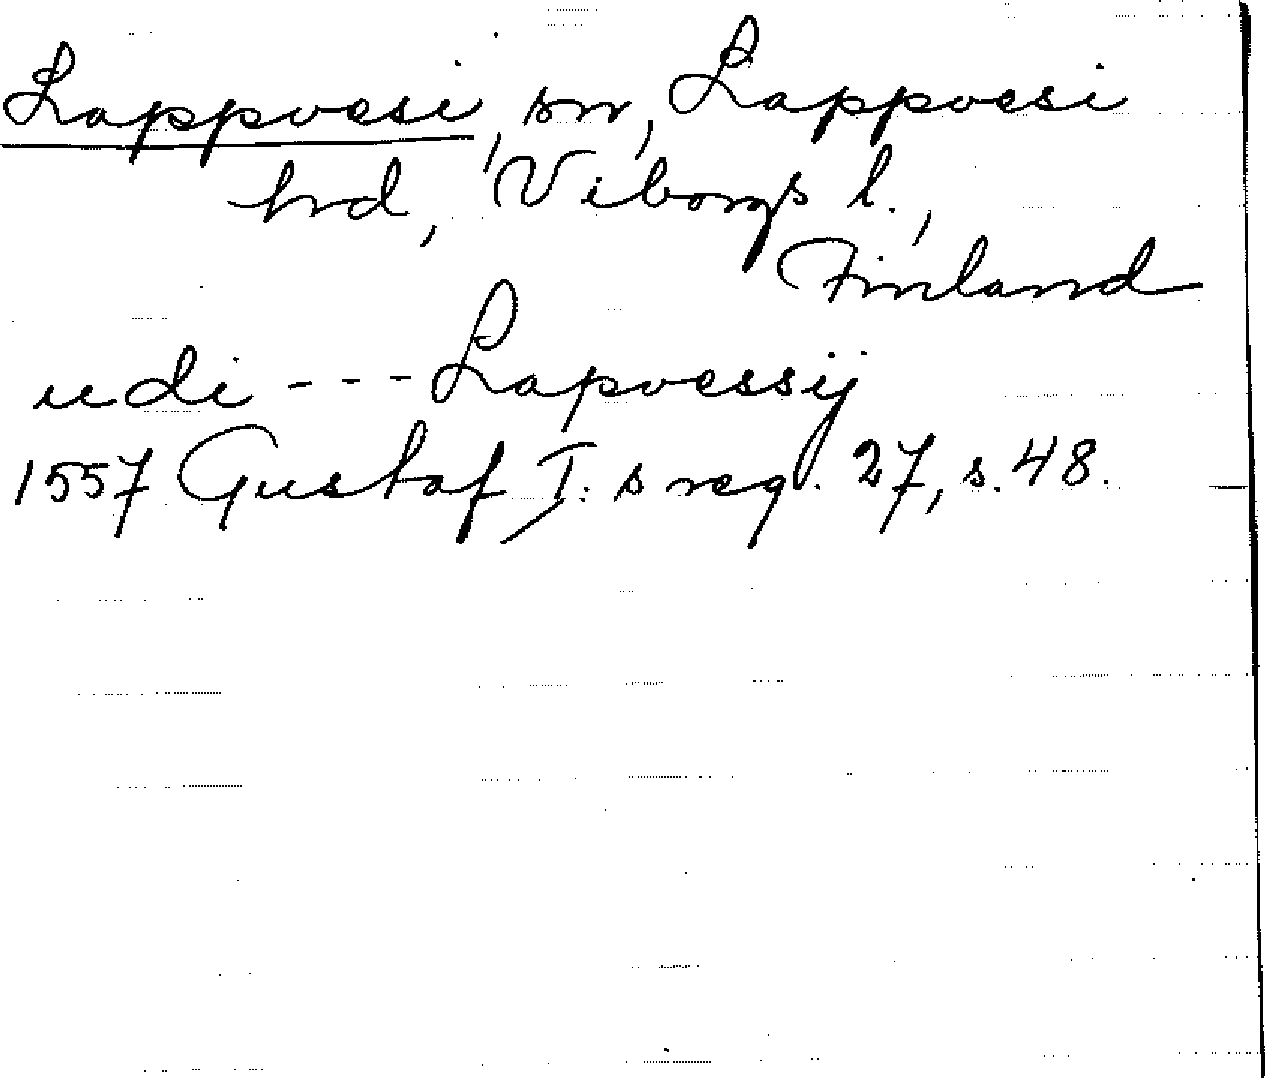 Lappvesi, sn, Lappvesi
hrd, Viborgs l.,
Finland
udi --- Lapvessij
1557 Gustaf I:s reg. 27, s. 48.